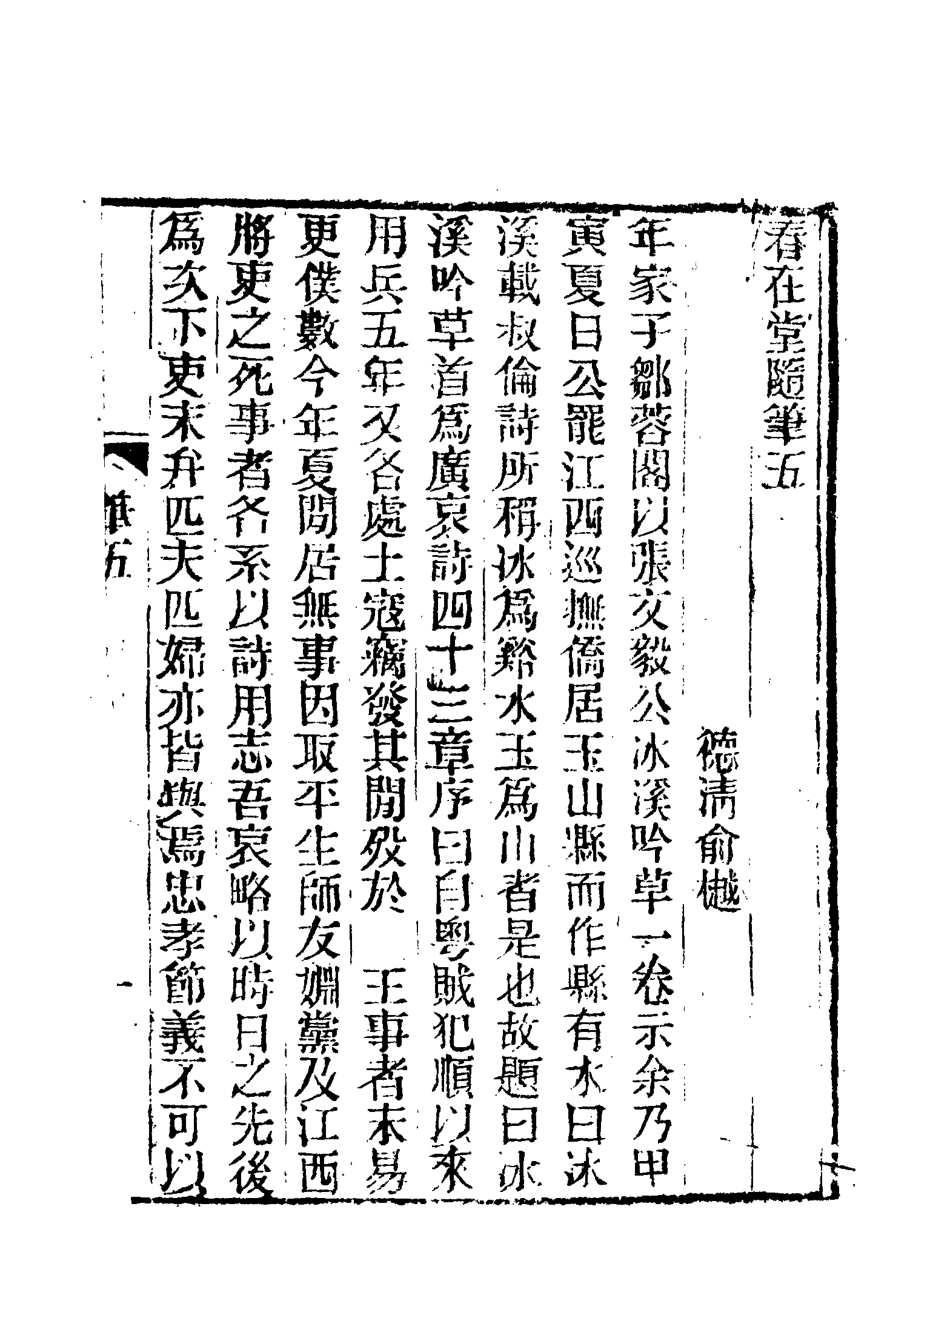 春在堂隨筆五
德清俞樾
年家子鄒蓉閣以張文毅公冰溪吟草一卷示余乃甲
寅夏日公罷江西巡撫僑居玉山縣而作縣有水曰冰
溪載叔倫詩所稱冰為谿水玉為山者是也故題曰冰
溪吟草首為廣哀詩四十三章序曰自粵賊犯順以來
用兵五年又各處土寇竊發其閒歿於　王事者未易
更僕數今年夏閒居無事因取平生師友婣黨及江西
將吏之死事者各系以詩用志吾哀略以時日之先後
為次下吏末弁匹夫匹婦亦皆與焉忠孝節義不可以
五